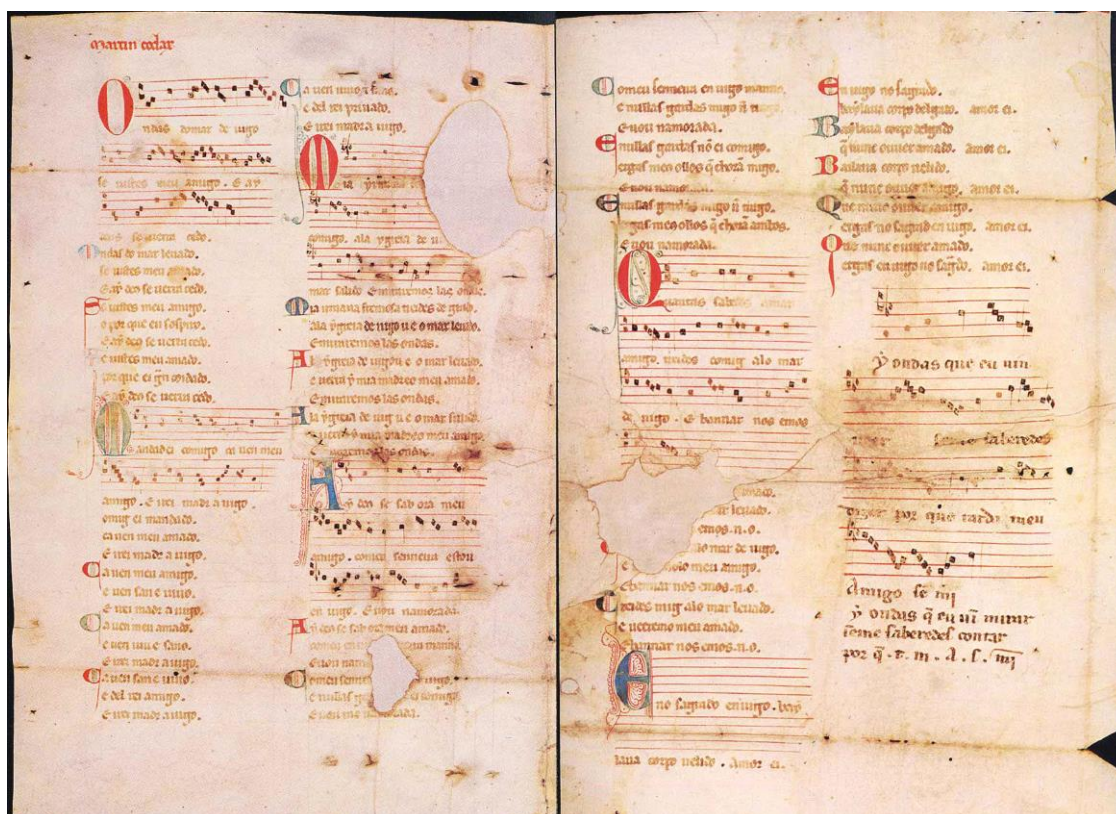 Martin codax
Ondas do mar de uigo
se uistes meu amigo. E ay
deus se uerra cedo.
Ondas do mar leuado.
se uistes meu amado.
E ay deo se uerra cedo.
Se uistes meu amigo.
o por que eu sospiro.
E ay deo se uerra cedo.
Se uistes meu amado.
por que ei gñ coidado.
E ay deo se uerra cedo.
Mandad ei comigo ca uen meu
amigo. E irei madr a uigo.
omig ei mandado.
ca uen meu amado.
E irei madr a uigo.
Ca uen meu amigo.
e uen san e uiuo.
E irei madr a uigo.
Ca uen meu amado.
e uen uiu e sano.
E irei madr a uigo.
Ca uen san e uiuo.
e del rei amigo.
E irei madr a uigo.
Ca uen uiuo e sano.
e del rei priuado.
E irei madr a uigo.
Mia yrmana
comigo. ala ygreia de u
mar salido E miraremos las ondas.
Mia irmana fremosa treides de grado.
ala ygreia de uigo u e o mar leuado.
E miraremos las ondas.
A la ygreia de uigo u e o mar leuado.
e uerra y mia madre o meu amado.
E miraremos las ondas.
A la ygreia de uig u e o mar salido.
e uerra y mia madre o meu amigo.
E miraremos las ondas.
Ay deo se sab ora meu
amigo. com eu senneira estou
en uigo. E uou namorada.
Ay deo se sab ora meu amado.
com eu en manno.
E uou nam
Com eu senn uigo.
e nullas g ei comigo
E uou namorada.
Com eu senneira en uigo manno.
e nullas gardas migo ñ trago.
E uou namorada.
E nullas gardas nõ ei comigo.
ergas meo ollos q̃ chorã migo.
E uou namorada.
E nullas gardas migo ñ trago.
ergas meo ollos q̃ chorã ambos.
E uou namorada.
Quantas sabedes amar
amigo. treides comig alo mar
de uigo. E bannar nos emos
ar leuado.
emos. n. o.
alo mar de uigo.
e o meu amigo.
E bannar nos emos. n. o.
Treides mig alo mar leuado.
e ueeremo meu amado.
E bannar nos emos. n. o.
Eno sagrado en uigo. bay
laua corpo uelido. Amor ei.
En uigo no sagrado.
baylaua corpo delgado. amor ei.
Baylaua corpo delgado
q̃ nunc ouuer amado. amor ei.
Bailaua corpo uelido.
q̃ nunc ouuer amigo. amor ei.
Que nunc ouuer amigo.
ergas no sagrad en uigo. amor ei.
Que nunc ouuer amado.
ergas en uigo no sagrado. amor ei.
Ay ondas que eu uin
ueer se me saberedes
dizer por que tarda meu
Amigo se mi
Ay ondas q̃ eu uĩ mirar
se me saberedes contar
por q̃ . t. m. A. s. mi